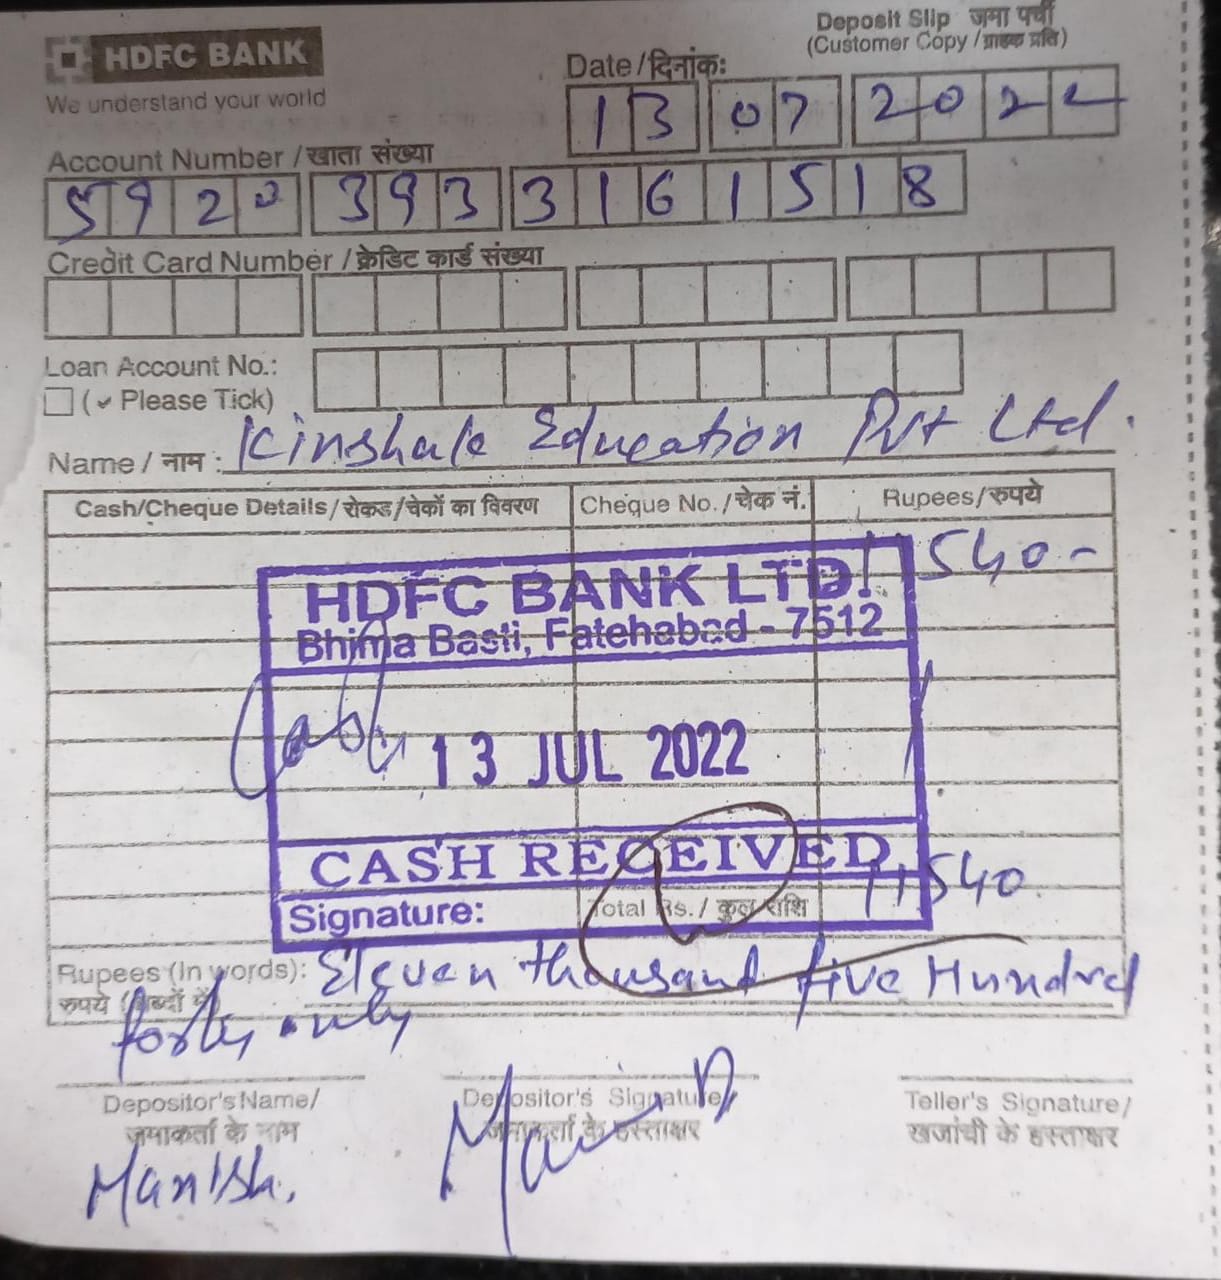 HDFC BANK
We understand your world
Deposit Slip जमा पर्ची
(Customer Copy / ग्राहक प्रति)
Date / दिनांक:
13 07 2022
Account Number / खाता संख्या
5920 393 3161518
Credit Card Number / क्रेडिट कार्ड संख्या
Loan Account No.:
(✓ Please Tick)
Name / नाम : Kinshale Education Pvt Ltd.
Cash/Cheque Details / रोकड/चेकों का विवरण Cheque No. / चेक नं. Rupees/रुपये
11540-
HDFC BANK LTD.
Bhima Basti, Fatehabad - 7512
Cash
13 JUL 2022
CASH RECEIVED
Signature:
Total Rs. / कुल राशि 11,540
Rupees (In words): Eleven thousand five Hundred
रुपये (शब्दों में)
forty only
Depositor's Name/
जमाकर्ता के नाम
Manish.
Depositor's Signature/
जमाकर्ता के हस्ताक्षर
Teller's Signature/
खजांची के हस्ताक्षर